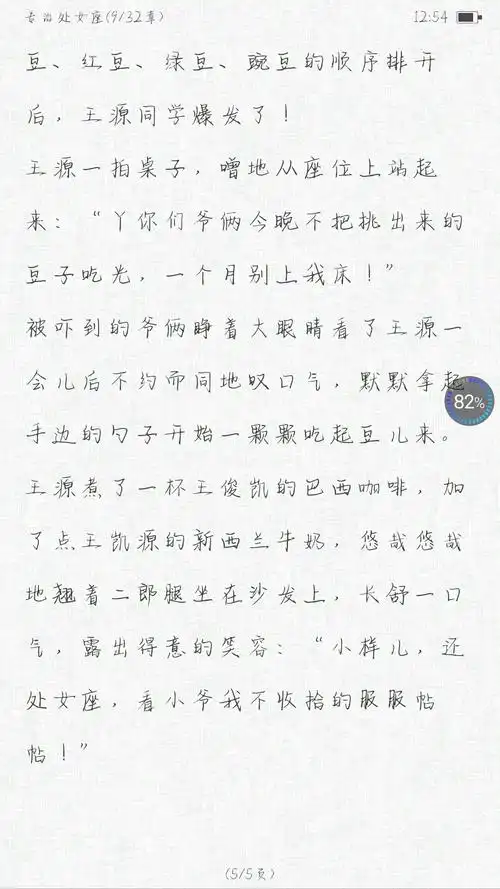 专治处女座(9/32章) 12:54
豆、红豆、绿豆、豌豆的顺序排开
后，王源同学爆发了！
王源一拍桌子，噌地从座位上站起
来：“丫你们爷俩今晚不把挑出来的
豆子吃光，一个月别上我床！”
被吓到的爷俩睁着大眼睛看了王源一
会儿后不约而同地叹口气，默默拿起
82%
手边的勺子开始一颗颗吃起豆儿来。
王源煮了一杯王俊凯的巴西咖啡，加
了点王凯源的新西兰牛奶，悠哉悠哉
地翘着二郎腿坐在沙发上，长舒一口
气，露出得意的笑容：“小样儿，还
处女座，看小爷我不收拾的服服帖
帖！”
(5/5页)